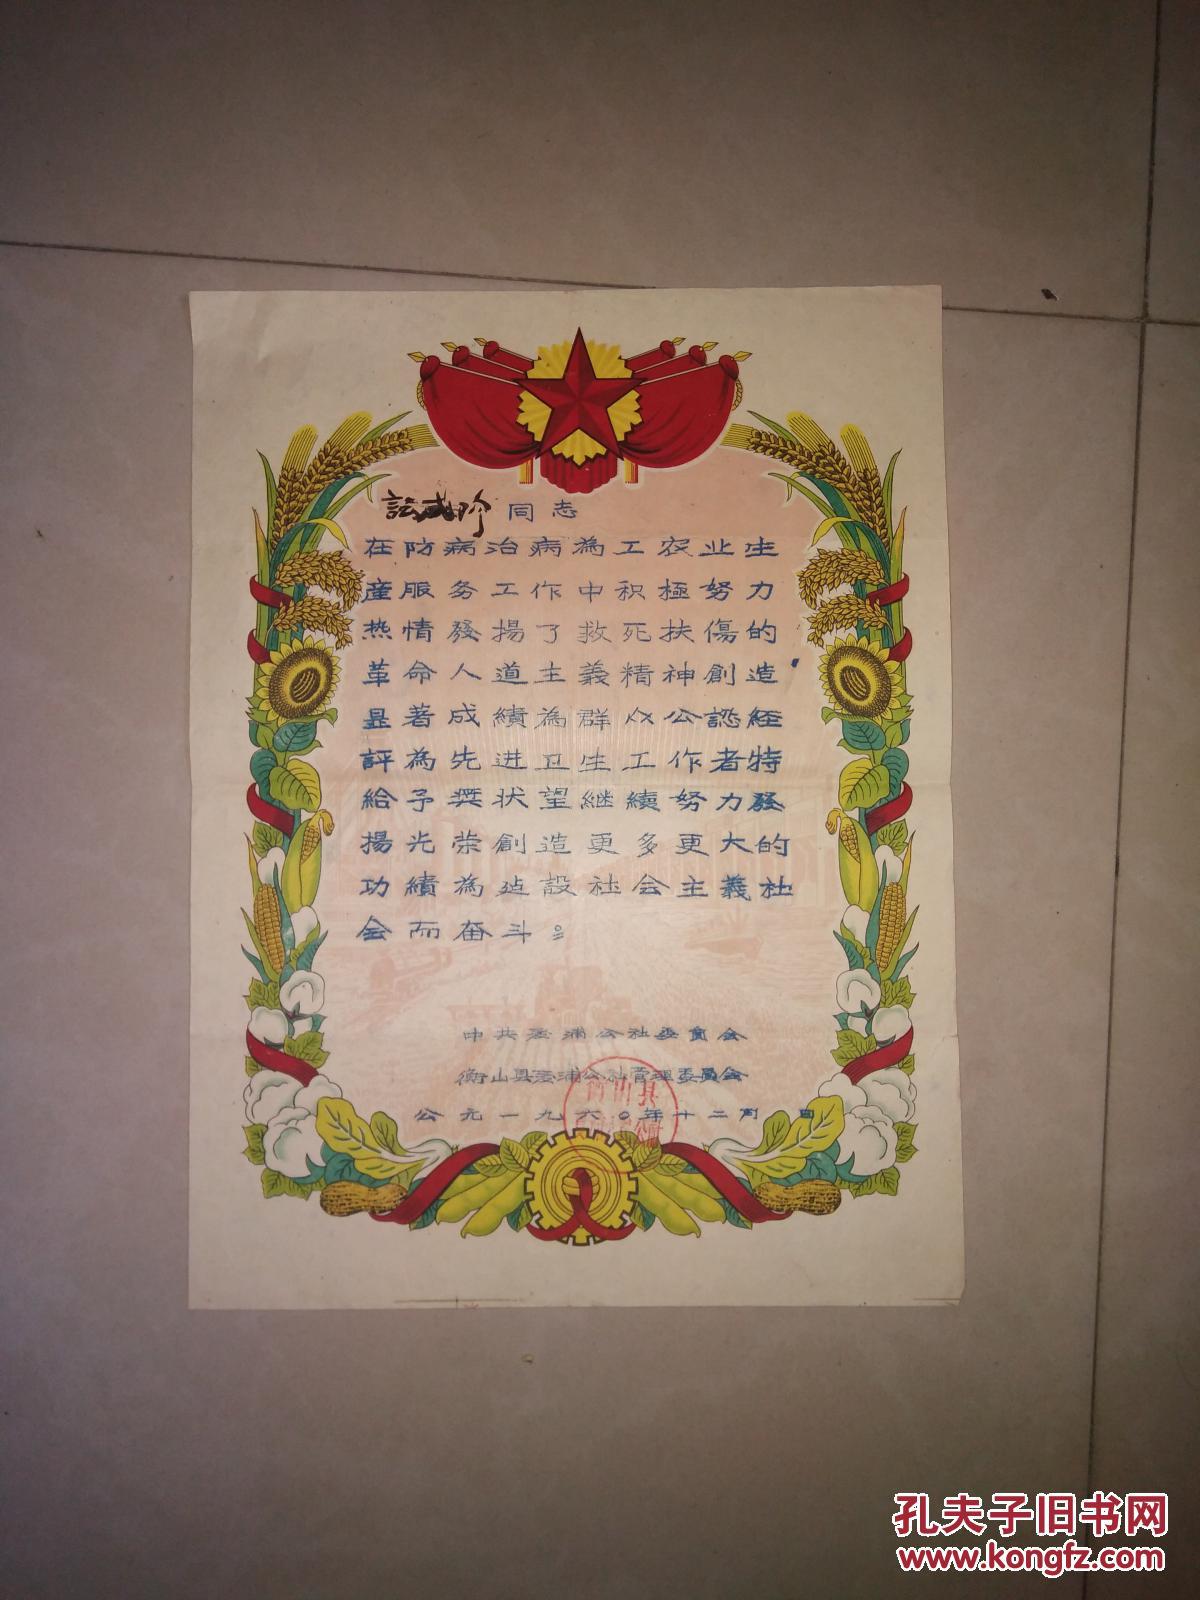 同志
在防病治病為工农业生
産服务工作中积極努力
热情發揚了救死扶傷的
革命人道主義精神創造
显著成績為群众公認経
評為先进卫生工作者特
給予奖状望継續努力發
揚光荣創造更多更大的
功績為建設社会主義社
会而奋斗。
中共浦公社委員会
衡山县浦公社管理委員会
公元一九六〇年十二月 日
衡山县
孔夫子旧书网
www.kongfz.com